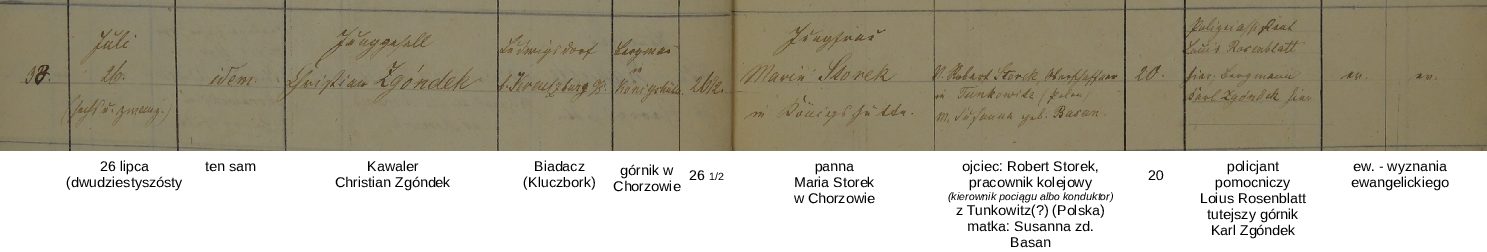 38.
Juli
26.
(sechs u. zwanz.)
idem.
Junggesell
Christian Zgóndek
Ludwigsdorf
Bergman
in
Königshütte
26 1/2.
Jungfrau
Marie Storek
in Königshütte.
V. Robert Storek,
in Tunkowitz (Polen)
M. Susanna geb. Basan.
20.
Louis Rosenblatt
hier, Bergmann
Karl Zgóndek hier
ev.
ev.
26 lipca
(dwudziestyszósty
ten sam
Kawaler
Christian Zgóndek
Biadacz
(Kluczbork)
górnik w
Chorzowie
26 1/2
panna
Maria Storek
w Chorzowie
ojciec: Robert Storek,
pracownik kolejowy
(kierownik pociągu albo konduktor)
z Tunkowitz(?) (Polska)
matka: Susanna zd.
Basan
20
policjant
pomocniczy
Loius Rosenblatt
tutejszy górnik
Karl Zgóndek
ew. - wyznania
ewangelickiego